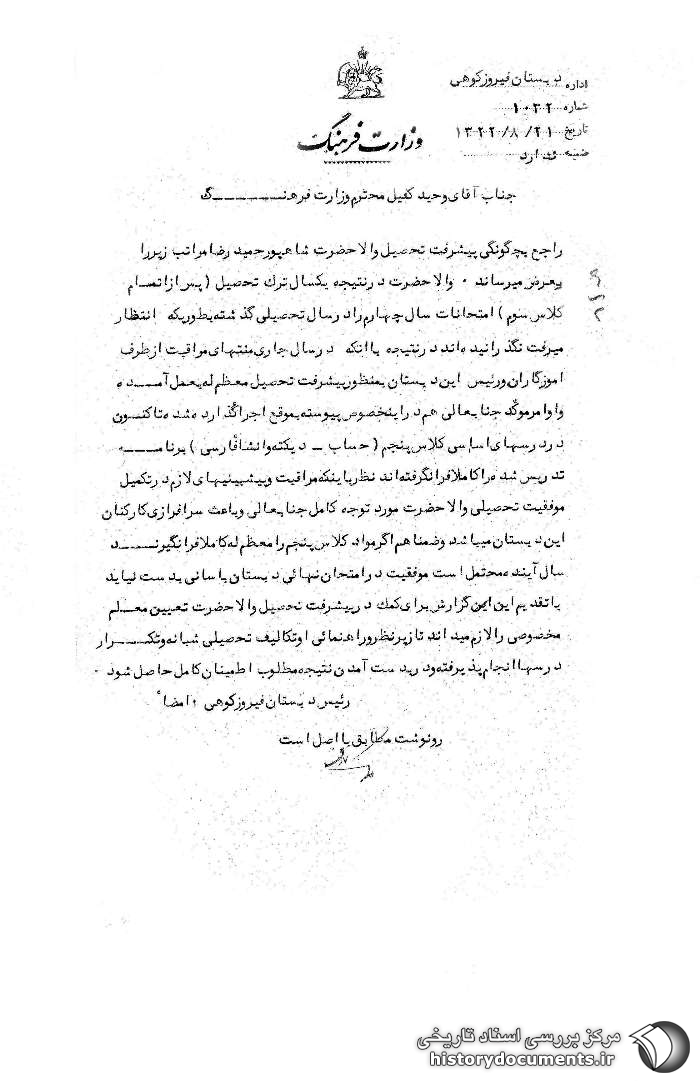 اداره دبستان فیروزکوهی
شماره ۱۰۳۲
تاریخ ۱۳۲۲/۸/۲۱
ضمیمه ندارد
وزارت فرهنگ
جناب آقای وحید کفیل محترم وزارت فرهنـــــگ
راجع بچگونگی پیشرفت تحصیل والاحضرت شاهپور حمید رضا مراتب زیر را
بعرض میرساند ۰ والاحضرت در نتیجه یکسال ترک تحصیل (پس از اتمام
کلاس سوم) امتحانات سال چهارم را در سال تحصیلی گذشته بطوریکه انتظار
میرفت نگذرانیده‌اند در نتیجه با آنکه در سال جاری منتهای مراقبت از طرف
اموزگاران ورئیس این دبستان بمنظور پیشرفت تحصیل معظم له بعمل آمـــده
واوامر موکد جنابعالی هم در اینخصوص پیوسته بموقع اجرا گذارده شده تاکنون
در درسهای اساسی کلاس پنجم (حساب ــ دیکته وانشاٴفارسی) برنامــه
تدریس شده را کاملا فرا نگرفته‌اند نظر باینکه مراقبت وپیشبینیهای لازم در تکمیل
موفقیت تحصیلی والاحضرت مورد توجه کامل جنابعالی وباعث سرافرازی کارکنان
این دبستان میباشد وضمنا هم اگر مواد کلاس پنجم را معظم له کاملا فرا نگیرنـــد
سال آینده محتمل است موفقیت در امتحان نهائی دبستان باسانی بدست نیاید
با تقدیم این این گزارش برای کمک در پیشرفت تحصیل والاحضرت تعیین معـلم
مخصوصی را لازم میداند تا زیر نظر وراهنمائی او تکالیف تحصیلی شبانه وتکـــرار
درسها انجام پذیرفته ودر بدست آمدن نتیجه مطلوب اطمینان کامل حاصل شود ۰
رئیس دبستان فیروزکوهی ؛ امضاٴ
رونوشت مطابق با اصل است
مرکز بررسی اسناد تاریخی
historydocuments.ir